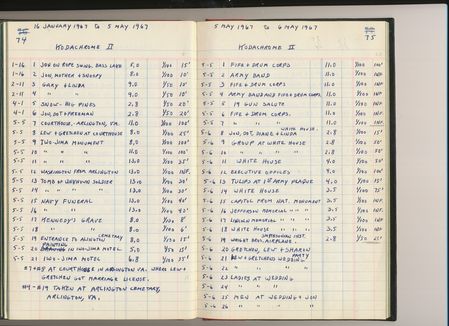 16 JANUARY 1967 to 5 MAY 1967
74
KODACHROME II
1-16 1 JON ON ROPE SWING. BASS LAKE 5.0 1/100 15'
1-16 2 JON, MOTHER & SNOOPY 8.0 1/100 10'
2-11 3 GARY & LINDA 9.0 1/50 10'
2-11 4 " " 4.0 1/50 10'
4-1 5 SNOW - BIG PINES 2.8 1/50 20'
4-1 6 JON, DOT & FREEMAN 2.8 1/50 20'
5-5 7 COURTHOUSE, ARLINGTON, VA. 11.0 1/100 100'
5-5 8 LEW & GRETCHEN AT COURTHOUSE 8.0 1/100 25'
5-5 9 IWO-JIMA MONUMENT 8.0 1/100 100'
5-5 10 " " " 11.0 1/100 100'
5-5 11 " " " 13.0 1/100 35'
5-5 12 WASHINGTON FROM ARLINGTON 13.0 1/100 INF.
5-5 13 TOMB OF UNKNOWN SOLDIER 13.0 1/100 30'
5-5 14 " " " " 13.0 1/100 35'
5-5 15 NAVY FUNERAL 13.0 1/100 40'
5-5 16 " " 13.0 1/100 40'
5-5 17 KENNEDY'S GRAVE 8.0 1/100 8'
5-5 18 " " 8.0 1/100 6'
5-5 19 ENTRANCE TO ARLINGTON CEMETARY 8.0 1/100 15'
5-5 20 PAINTING IWO-JIMA MOTEL 5.0 1/50 15'
5-5 21 IWO-JIMA MOTEL 6.8 1/100 35'
#7+#8 AT COURTHOUSE IN ARLINGTON VA. WHERE LEW &
GRETCHEN GOT MARRIAGE LICENSE.
#9-#19 TAKEN AT ARLINGTON CEMETARY,
ARLINGTON, VA.
5 MAY 1967 to 6 MAY 1967
75
KODACHROME II
5-5 1 FIFE & DRUM CORPS. 11.0 1/100 100'
5-5 2 ARMY BAND 11.0 1/100 INF.
5-5 3 FIFE & DRUM CORPS. 11.0 1/100 INF.
5-5 4 ARMY BAND AND FIFE & DRUM CORPS. 11.0 1/100 INF.
5-5 5 19 GUN SALUTE 11.0 1/100 INF.
5-5 6 FIFE & DRUM CORPS. 11.0 1/100 INF.
5-5 7 " " " 11.0 1/100 INF.
5-6 8 JON, DOT, DIANE, & LINDA WHITE HOUSE. 2.8 1/100 15'
5-6 9 GROUP AT WHITE HOUSE 2.8 1/100 50'
5-6 10 " " " " 2.8 1/100 50'
5-6 11 WHITE HOUSE 4.0 1/100 50'
5-6 12 EXECUTIVE OFFICES 9.0 1/100 100'
5-6 13 TULIPS AT 1ST ARMY PLAQUE 4.0 1/100 15'
5-6 14 WHITE HOUSE 3.5 1/100 75'
5-6 15 CAPITOL FROM NAT. MONUMENT 3.5 1/100 INF.
5-6 16 JEFFERSON MEMORIAL " " " 3.5 1/100 INF.
5-6 17 LINCOLN MEMORIAL " " " 3.5 1/100 INF.
5-6 18 WHITE HOUSE " " " 3.5 1/100 INF.
5-6 19 WRIGHT BROS. AIRPLANE SMITHSONIAN INST. 2.8 1/50 25'
5-6 20 GRETCHEN, LEW & SHARON
5-6 21 LEW & GRETCHENS WEDDING PARTY
5-6 22 " " "
5-6 23 LADIES AT WEDDING
5-6 24 " " "
5-6 25 MEN AT WEDDING & JON
5-6 26 " " " "